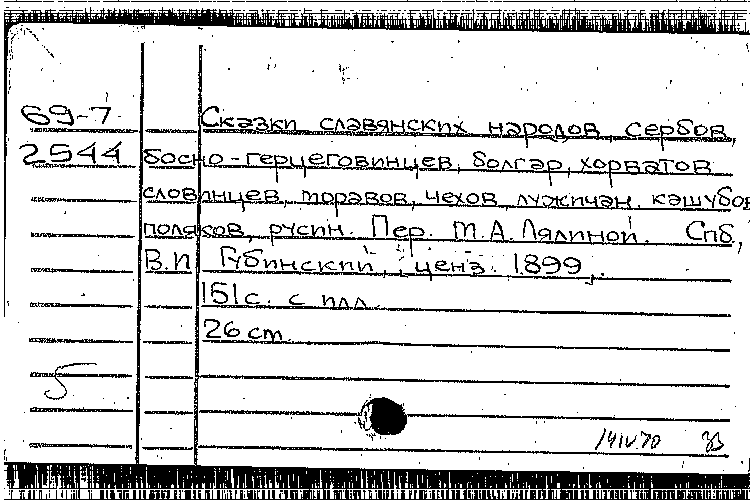 69-7 Сказки славянских народов, сербов,
2544 босно-герцеговинцев, болгар, хорватов
словинцев, моравов, чехов, лужичан, кашубов
поляков, русин. Пер. М.А. Лялиной. Спб,
В.И. Губинский, ценз. 1899,.
151 с. с илл.
26 cm.
5
14 IV 70